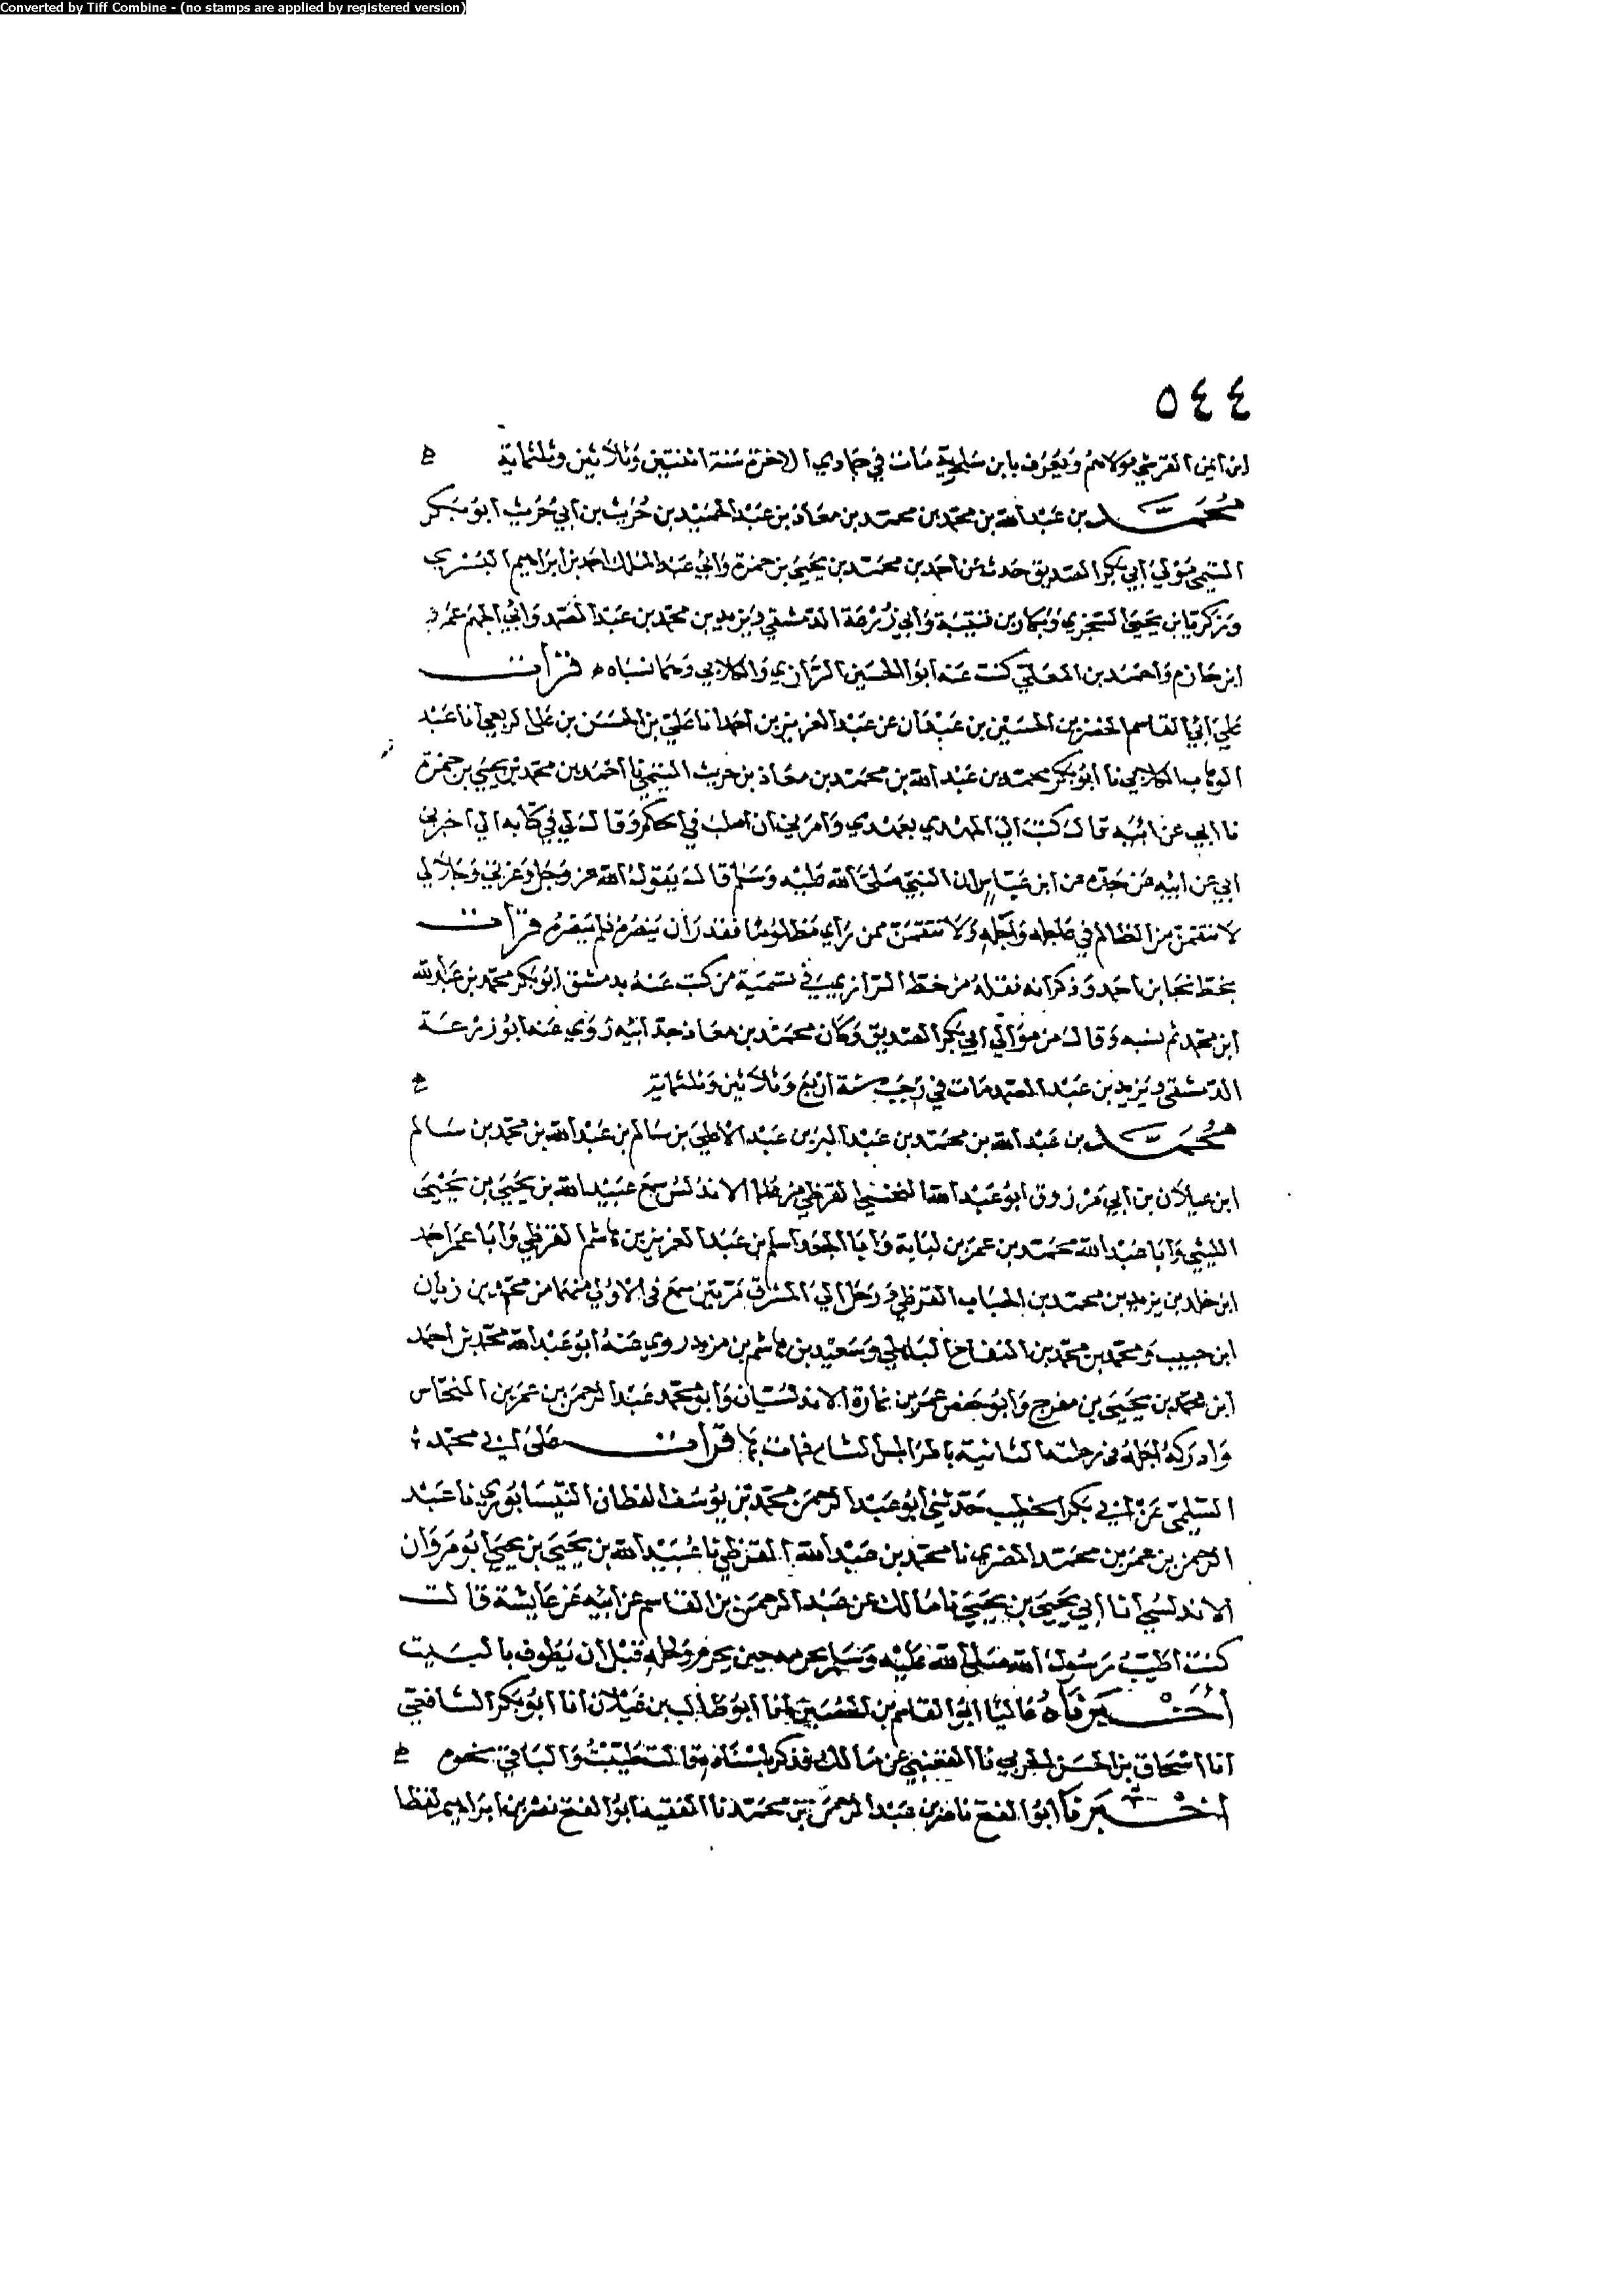 Converted by Tiff Combine - (no stamps are applied by registered version)
٥٤٤
ابن ايمن القرشي مولاهم ويعرف بابن مات في جمادي الاخرة سنة اثنتين وثلاثين وثلثماية
محمد بن عبد الله بن محمد بن محمد بن معاذ بن عبد الحميد بن حريث بن ابي حريث ابو بكر
التيمي مولي ابي بكر الصديق حدث عن احمد بن محمد بن يحيي بن حمزة وابي عبد الملك احمد بن ابراهيم البسري
وزكريا بن يحيي السجزي وبكار بن قتيبة وابي زرعة الدمشقي ويزيد بن محمد بن عبد الصمد وابي الجهم عمرو
ابن حازم واحمد بن المعلي كتب عنه ابو الحسين الرازي والكلابي وهما نسباه قرات
علي ابي القاسم الخضر بن الحسين بن عبدان عن عبد العزيز بن احمد انا علي بن الحسن بن علي الربعي انا عبد
الوهاب الكلابي نا ابو بكر محمد بن عبد الله بن محمد بن معاذ بن حريث التيمي نا احمد بن محمد بن يحيي بن حمزة
نا ابي عن ابيه قال كتب الي المهدي بعهدي وامرني ان اصلب في الحكم وقال لي في كتابه الي اخبرني
ابي عن ابيه عن جده عن ابن عباس ان النبي صلي الله عليه وسلم قال يقول الله عز وجل وعزتي وجلالي
لا نتقمن من الظالم في عاجله واجله ولا نتقمن ممن راي مظلوما فقدر ان ينصره فلم ينصره قرات
بخط نجا بن احمد وذكر انه نقله من خط الرازي في تسمية من كتب عنه بدمشق ابو بكر محمد بن عبد الله
ابن محمد ثم نسبه وقال من موالي ابي بكر الصديق وكان محمد بن معاذ جد ابيه روي عنه ابو زرعة
الدمشقي ويزيد بن عبد الصمد مات في رجب سنة اربع وثلاثين وثلثماية
محمد بن عبد الله بن محمد بن عبد البر بن عبد الاعلي بن سالم بن عبد الله بن محمد بن سالم
ابن غيلان بن ابي مرزوق ابو عبد الله القرطبي من علما الاندلس سمع عبيد الله بن يحيي بن يحيي
الليثي وابا عبد الله محمد بن عمر بن لبابة وابا الجعد اسلم بن عبد العزيز بن هاشم القرطبي وابا عمر احمد
ابن خالد بن يزيد بن محمد بن الحباب القرطبي ورحل الي المشرق مرتين سمع في الاولي منهما من محمد بن زبان
ابن حبيب ومحمد بن محمد بن النفاخ الباهلي وسعيد بن هاشم بن مزيد روي عنه ابو عبد الله محمد بن احمد
ابن محمد بن يحيي بن مفرج وابو جعفر عمر بن الاندلسيان وابو محمد عبد الرحمن بن عمر بن النحاس
وادركه اجله في رحلته الثانية باطرابلس الشام فمات بها قرات علي ابي محمد
السلمي عن ابي بكر الخطيب حدثني ابو عبد الرحمن محمد بن يوسف القطان النيسابوري نا عبد
الرحمن بن عمر بن محمد المصري نا محمد بن عبد الله القرطبي نا عبيد الله بن يحيي بن يحيي ابو مروان
الاندلسي انا ابي يحيي بن يحيي نا مالك عن عبد الرحمن بن القاسم عن ابيه عن عايشة قالت
كنت اطيب رسول الله صلي الله عليه وسلم لحرمه حين يحرم ولحله قبل ان يطوف بالبيت
اخبرناه عاليا ابو القاسم بن الحصين انا ابو طالب بن غيلان انا ابو بكر الشافعي
انا اسحاق بن الحسن الحربي نا القعنبي عن مالك فذكر باسناده وقالت طيبت والباقي نحوه
اخبرنا ابو الفتح ناصر بن عبد الرحمن بن محمد نا الفقيه ابو الفتح نصر بن ابراهيم لفظا